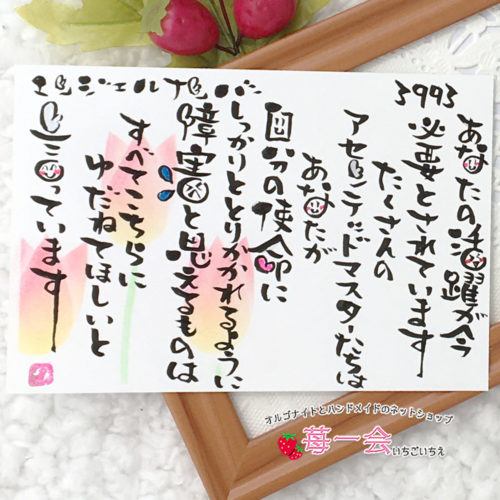 3993
あなたの活躍が今
必要とされています
たくさんの
アセンテッドマスターたちは
あなたが
自分の使命に
しっかりととりかかれるように
障害と思えるものは
すべてこちらに
ゆだねてほしいと
言っています
エンジェルナンバー
オルゴナイトとハンドメイドのネットショップ
苺一会いちごいちえ